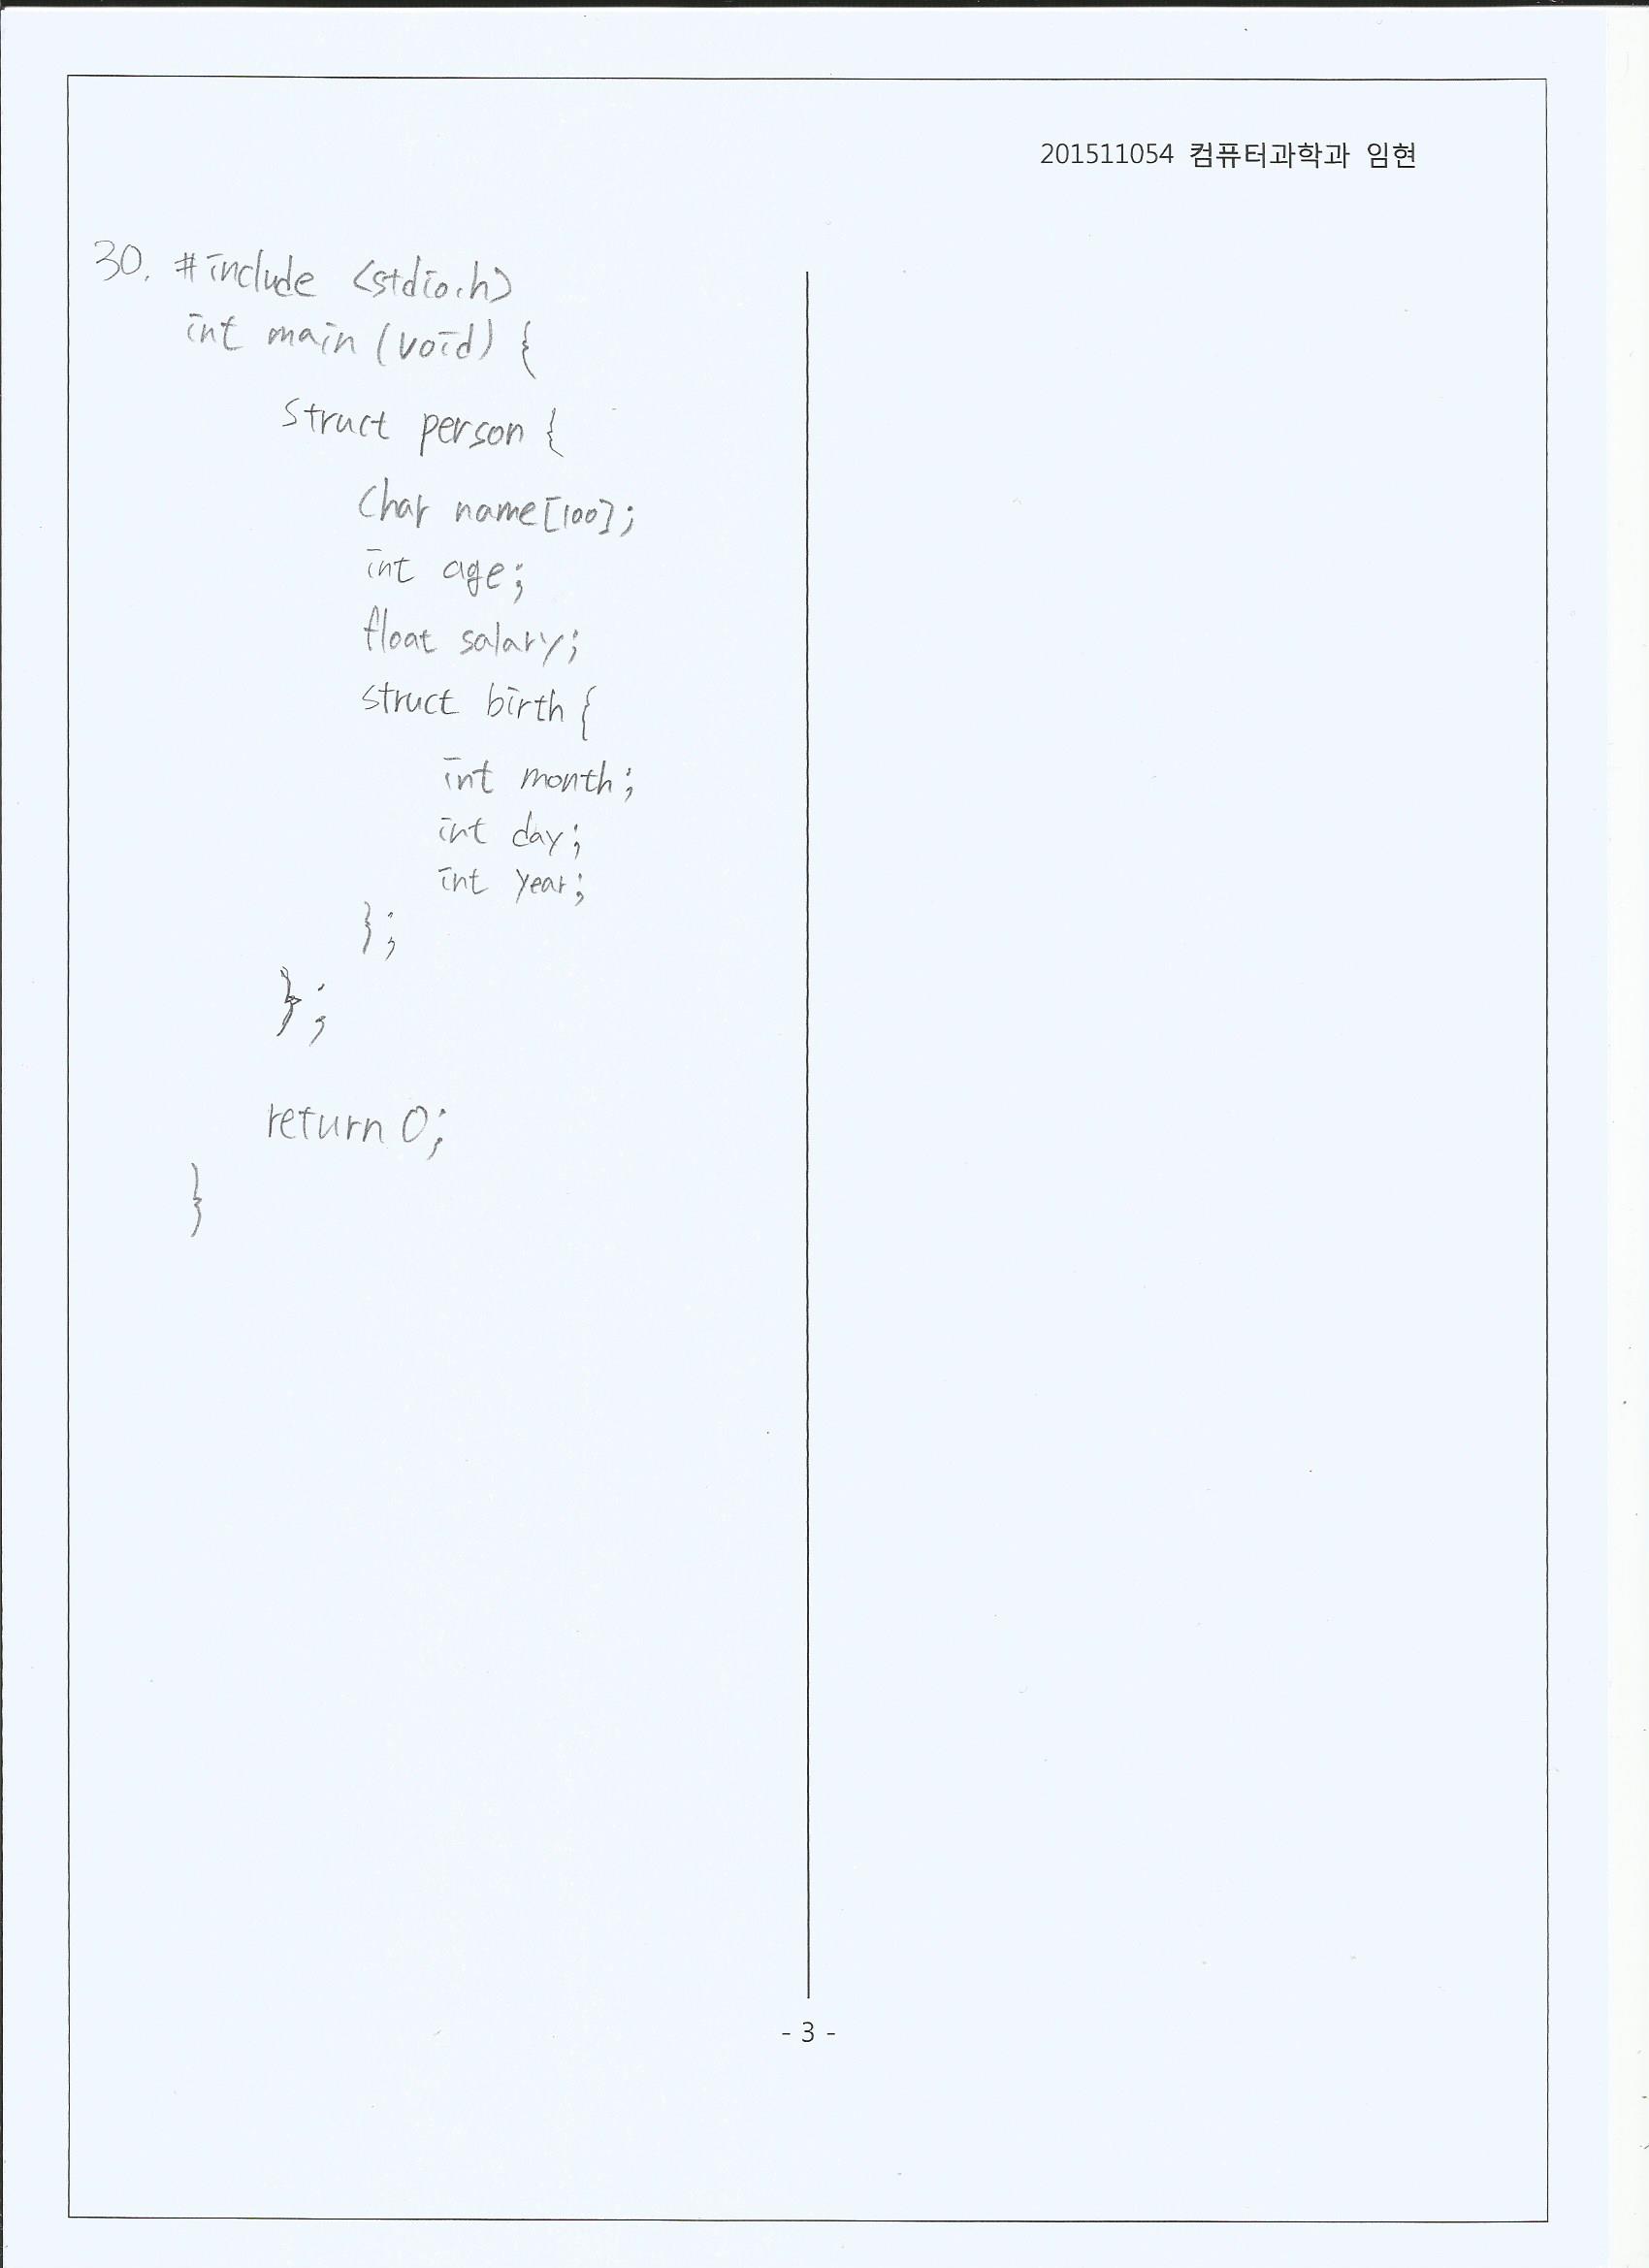 201511054 컴퓨터과학과 임현
30. #include <stdio.h>
int main (void) {
struct person {
char name[100];
int age;
float salary;
struct birth {
int month;
int day;
int year;
};
};
return 0;
}
- 3 -